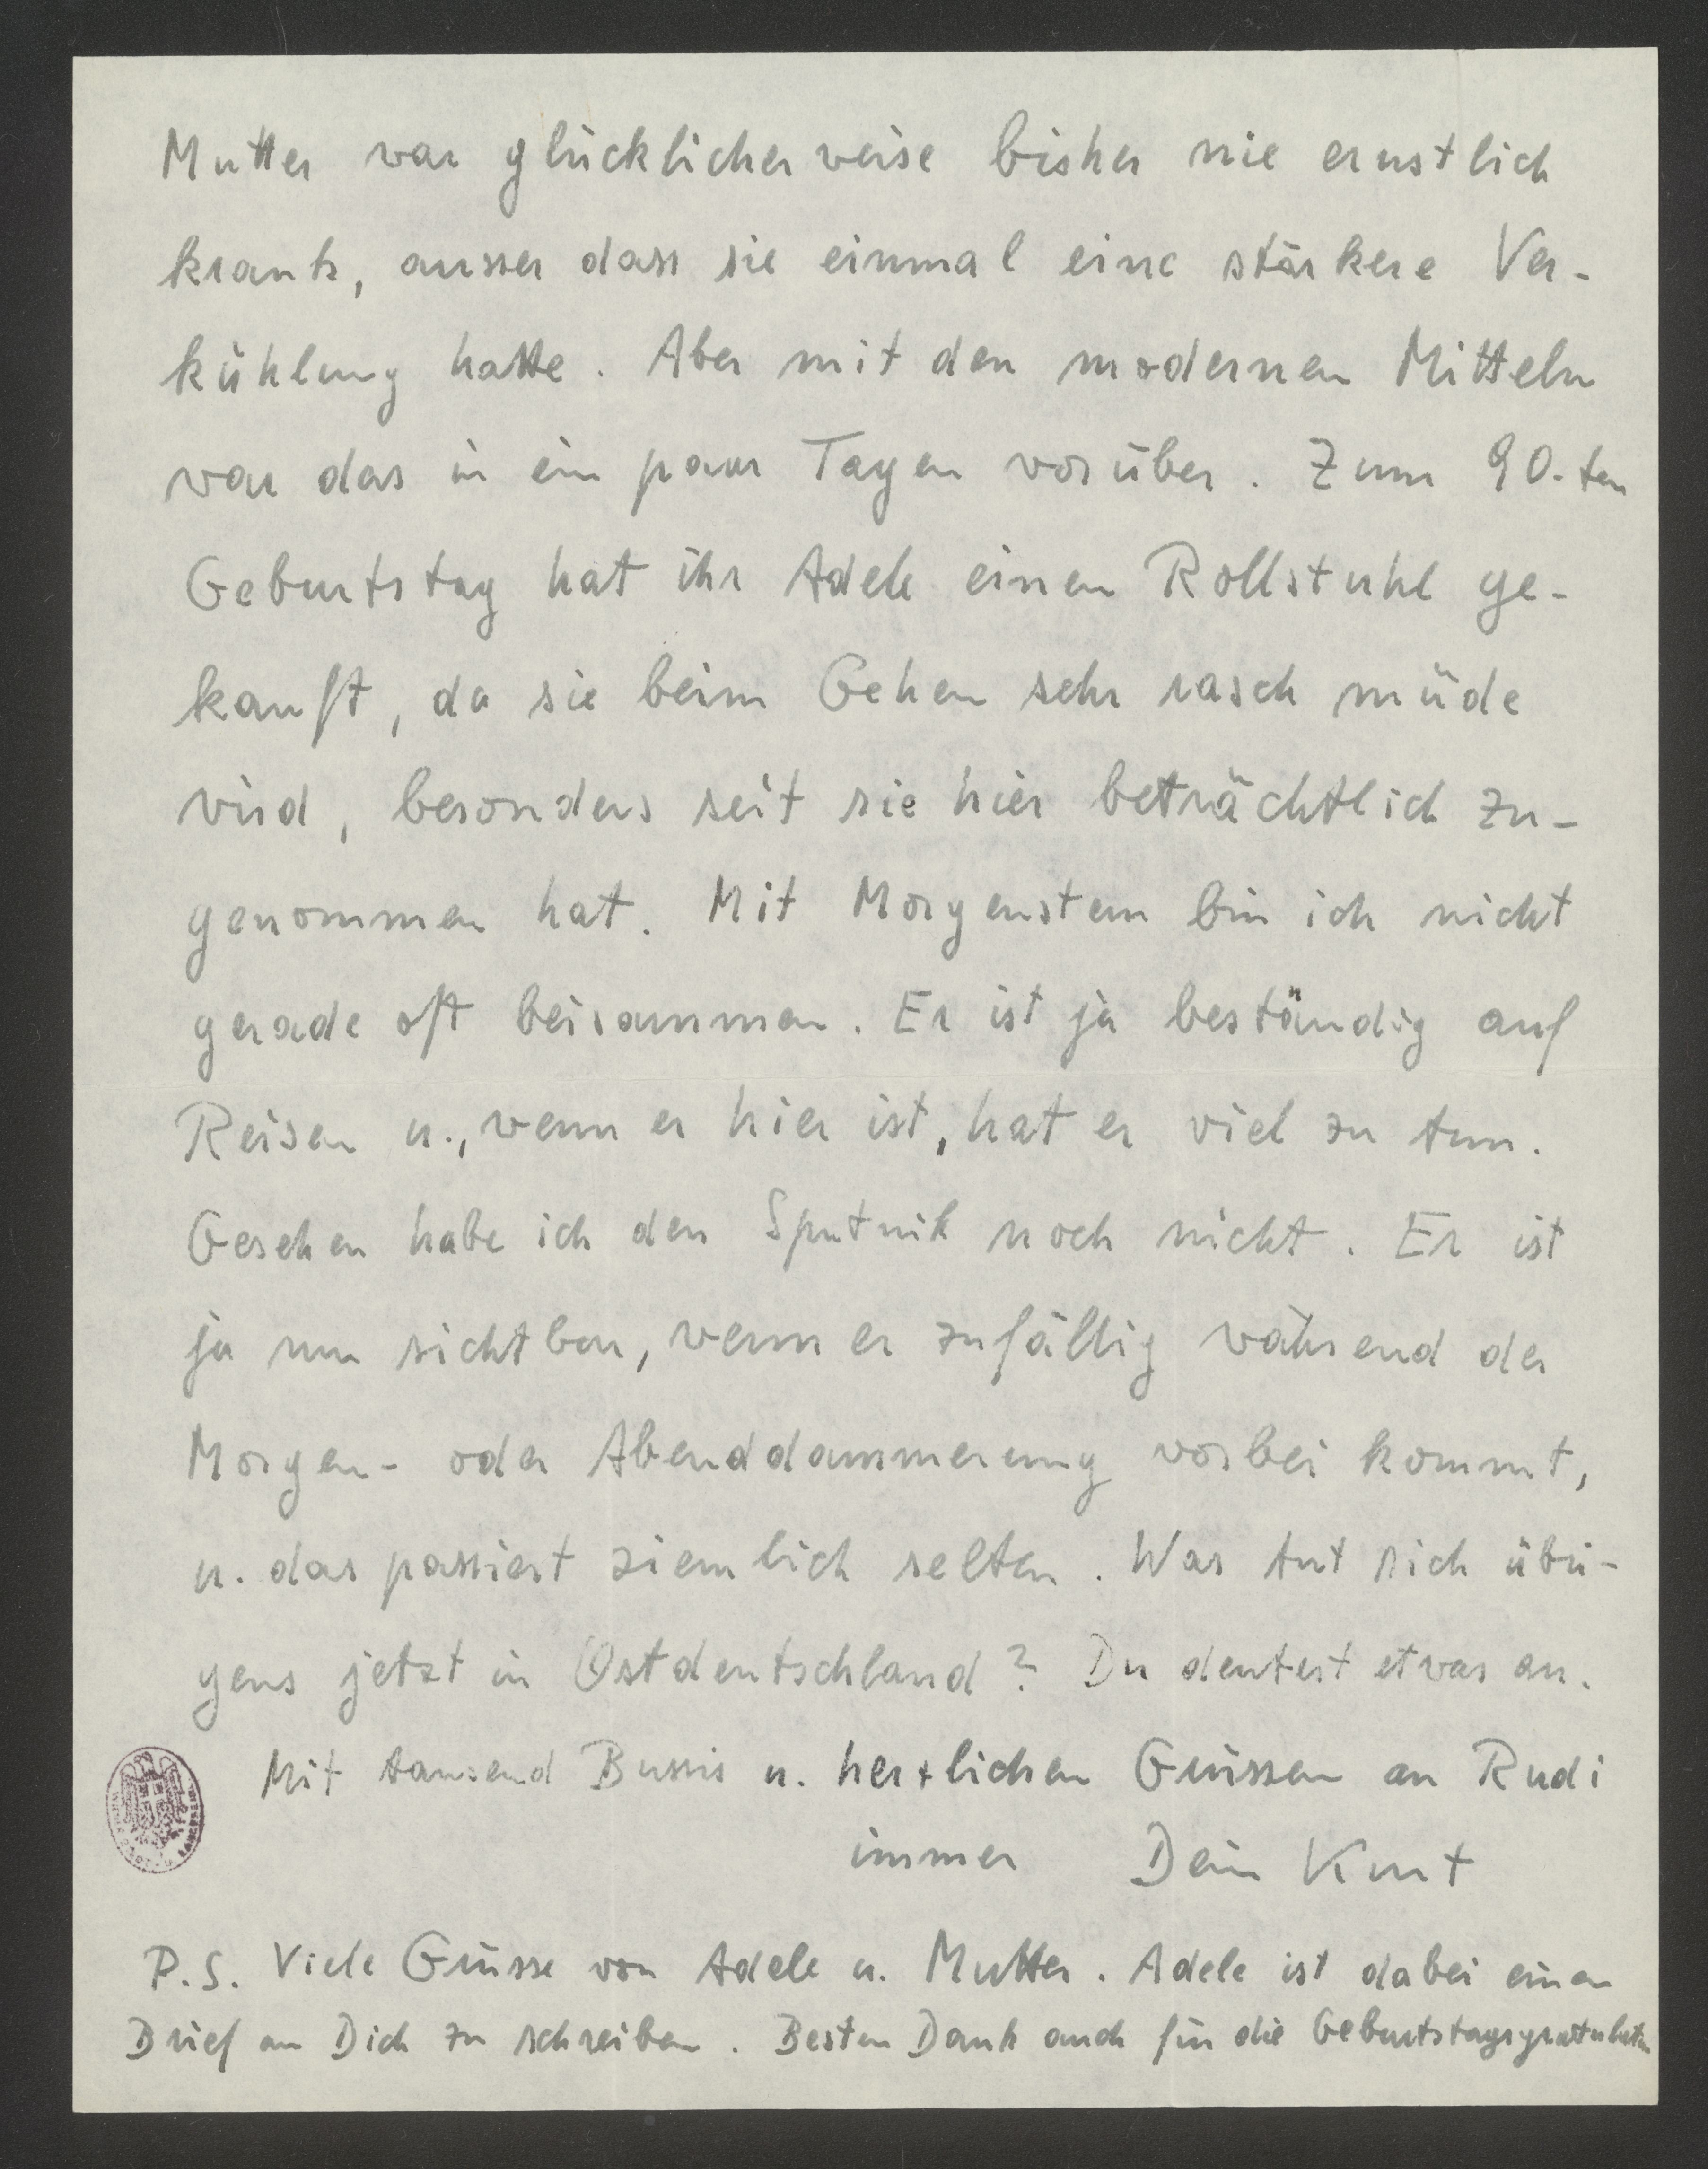 Mutter war glücklicherweise bisher nie ernstlich
krank, ausser dass sie einmal eine stärkere Ver-
kühlung hatte. Aber mit den modernen Mitteln
war das in ein paar Tagen vorüber. Zum 90.ten
Geburtstag hat ihr Adele einen Rollstuhl ge-
kauft, da sie beim Gehen sehr rasch müde
wird, besonders seit sie hier beträchtlich zu-
genommen hat. Mit Morgenstern bin ich nicht
gerade oft beisammen. Er ist ja beständig auf
Reisen u., wenn er hier ist, hat er viel zu tun.
Gesehen habe ich den Sputnik noch nicht. Er ist
ja nur sichtbar, wenn er zufällig während der
Morgen- oder Abenddammerung vorbei kommt,
u. das passiert ziemlich selten. Was tut sich übri-
gens jetzt in Ostdeutschland? Du deutest etwas an.
Mit tausend Bussis u. herzlichen Grüssen an Rudi
immer Dein Kurt
P.S. Viele Grüsse von Adele u. Mutter. Adele ist dabei einen
Brief an Dich zu schreiben. Besten Dank auch für die Geburtstagsgratulation